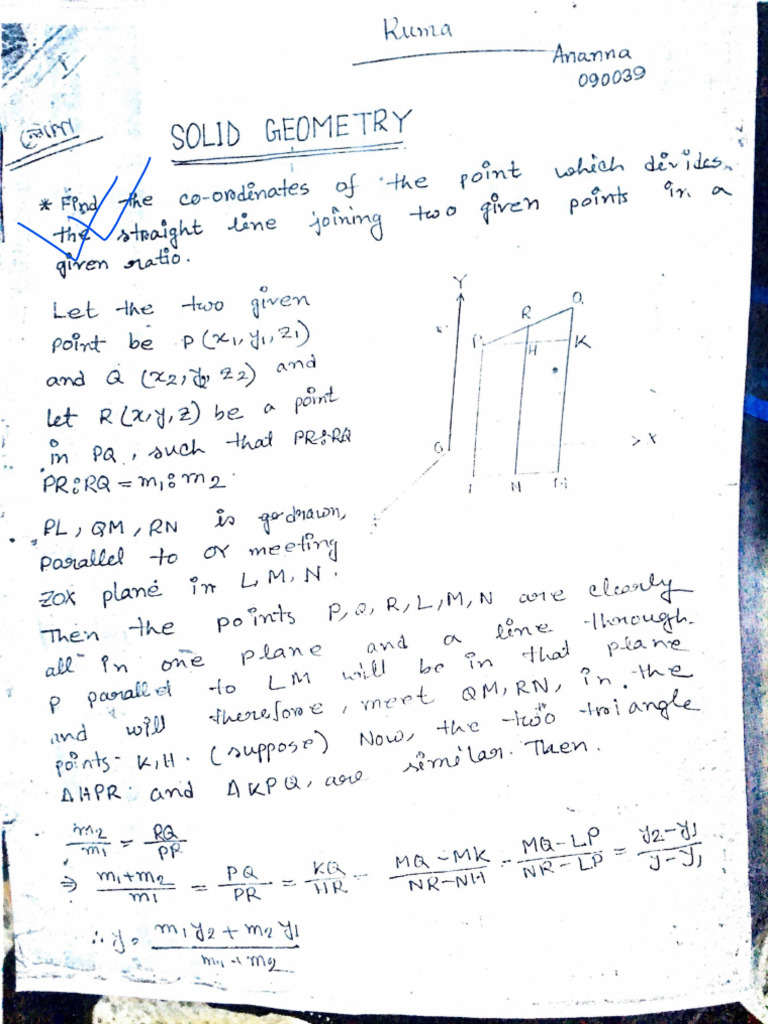 Ruma
Ananna
090039
SOLID GEOMETRY
* Find the co-ordinates of the point which divides
the straight line joining two given points in a
given ratio.
Let the two given
point be P(x₁, y₁, z₁)
and Q (x₂, y₂, z₂) and
let R(x, y, z) be a point
in PQ, such that PR:RQ
PR:RQ = m₁:m₂.
PL, QM, RN is drawn,
parallel to OY meeting
ZOX plane in L, M, N.
Then the points P, Q, R, L, M, N are clearly
all in one plane and a line through
P parallel to LM will be in that plane
and will therefore, meet QM, RN, in the
points K, H. (suppose) Now, the two triangle
ΔHPR and ΔKPQ, are similar. Then.
m₂/m₁ = RQ/PR
⇒ m₁+m₂/m₁ = PQ/PR = KQ/HR = MQ-MK/NR-NH = MQ-LP/NR-LP = y₂-y₁/y-y₁
∴ y = m₁y₂+m₂y₁/m₁+m₂
Y
R
Q
P
H
K
O
X
N
M